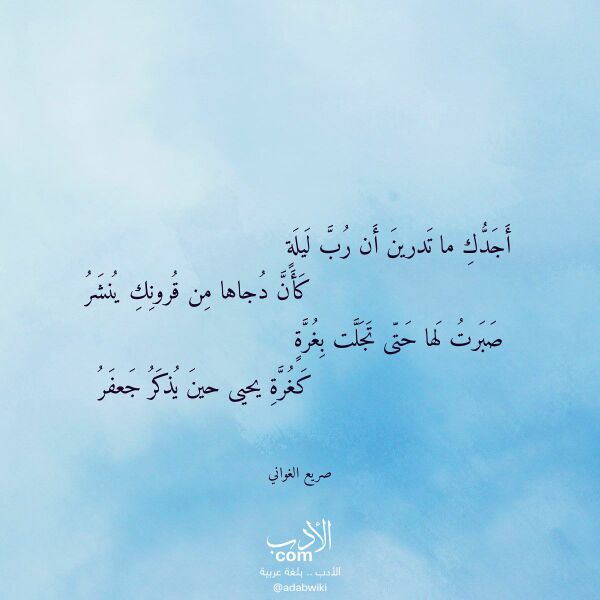 أَجَدُّكِ ما تَدرينَ أَن رُبَّ لَيلَةٍ
كَأَنَّ دُجاها مِن قُرونِكِ يُنشَرُ
صَبَرتُ لَها حَتّى تَجَلَّت بِغُرَّةٍ
كَغُرَّةِ يحيى حينَ يُذكَرُ جَعفَرُ
صريع الغواني
الأدب
com
الأدب .. بلغة عربية
@adabwiki